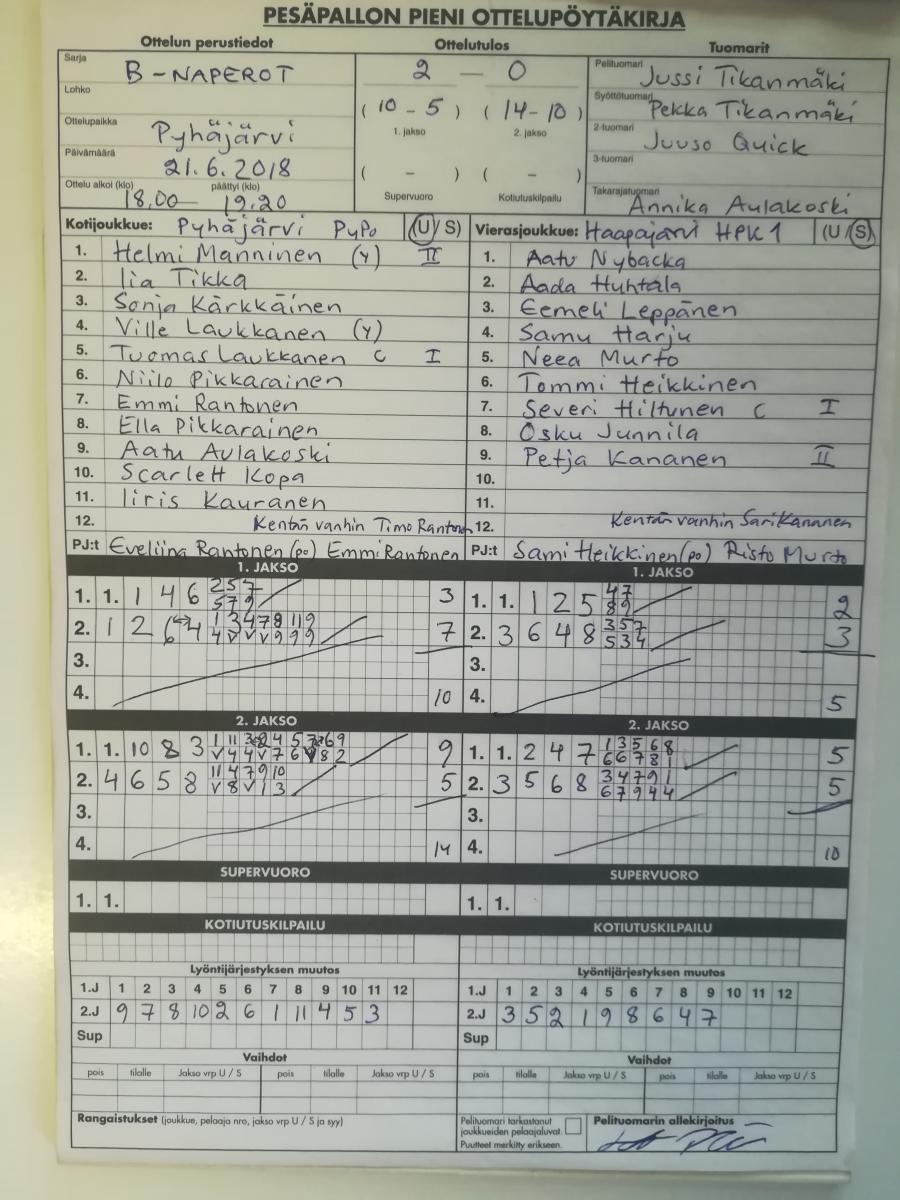 PESÄPALLON PIENI OTTELUPÖYTÄKIRJA
Ottelun perustiedot Ottelutulos Tuomarit
Sarja B-NAPEROT 2 — 0 Pelituomari Jussi Tikanmäki
Lohko (10 - 5) (14 - 10) Syöttötuomari Pekka Tikanmäki
Ottelupaikka Pyhäjärvi 1. jakso 2. jakso 2-tuomari Juuso Quick
Päivämäärä 21.6.2018 ( - ) ( - ) 3-tuomari
Ottelu alkoi (klo) 18,00 päättyi (klo) 19,20 Supervuoro Kotiutuskilpailu Takarajatuomari Annika Aulakoski
Kotijoukkue: Pyhäjärvi PyPo (U/S) Vierasjoukkue: Haapajärvi HPK 1 (U/S)
1. Helmi Manninen (Y) II 1. Aatu Nybacka
2. Iia Tikka 2. Aada Huhtala
3. Sonja Kärkkäinen 3. Eemeli Leppänen
4. Ville Laukkanen (Y) 4. Samu Harju
5. Tuomas Laukkanen C I 5. Neea Murto
6. Niilo Pikkarainen 6. Tommi Heikkinen
7. Emmi Rantonen 7. Severi Hiltunen C I
8. Ella Pikkarainen 8. Osku Junnila
9. Aatu Aulakoski 9. Petja Kananen II
10. Scarlett Kopa 10.
11. Iiris Kauranen 11.
12. Kentän vanhin Timo Rantonen 12. Kentän vanhin Sari Kananen
PJ:t Eveliina Rantonen (po) Emmi Rantonen PJ:t Sami Heikkinen (po) Risto Murto
1. JAKSO 1. JAKSO
1. 1. 1 4 6 2 5 7 3 1. 1. 1 2 5 4 7 2
5 7 9 8 9
2. 1 2 6 4 1 3 4 7 8 11 9 7 2. 3 6 4 8 3 5 7 3
4 V V V 9 9 9 5 3 4
3. 3.
4. 10 4. 5
2. JAKSO 2. JAKSO
1. 1. 10 8 3 9 1. 1. 2 4 7 1 3 5 6 8 5
6 6 7 8 1
2. 4 6 5 8 11 4 7 9 10 5 2. 3 5 6 8 3 4 7 9 1 5
V 8 V 1 3 6 7 9 4 4
3. 3.
4. 14 4. 10
SUPERVUORO SUPERVUORO
1. 1. 1. 1.
KOTIUTUSKILPAILU KOTIUTUSKILPAILU
Lyöntijärjestyksen muutos Lyöntijärjestyksen muutos
1.J 1 2 3 4 5 6 7 8 9 10 11 12 1.J 1 2 3 4 5 6 7 8 9 10 11 12
2.J 9 7 8 10 2 6 1 11 4 5 3 2.J 3 5 2 1 9 8 6 4 7
Sup Sup
Vaihdot Vaihdot
pois tilalle Jakso vrp U / S pois tilalle Jakso vrp U / S pois tilalle Jakso vrp U / S pois tilalle Jakso vrp U / S
Rangaistukset (joukkue, pelaaja nro, jakso vrp U / S ja syy) Pelituomari tarkastanut Pelituomarin allekirjoitus
joukkueiden pelaajaluvat
Puutteet merkitty erikseen.